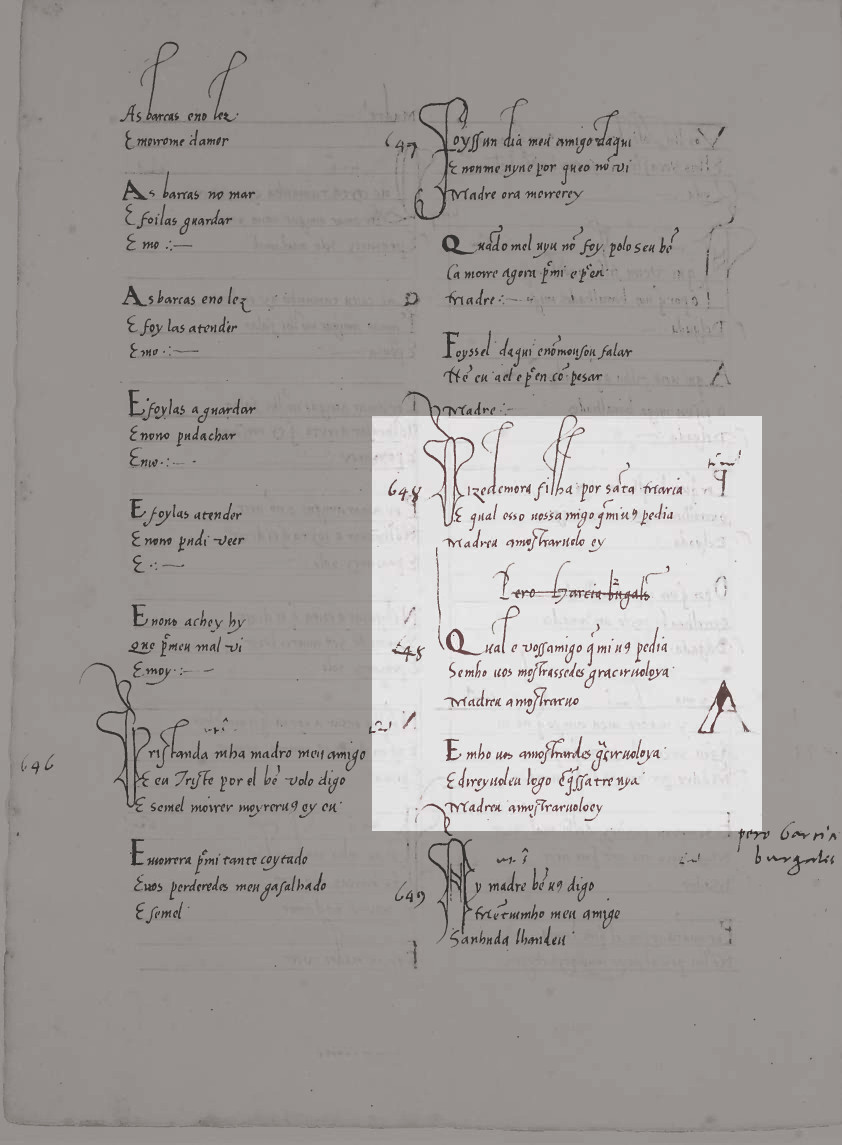 As barcas eno lez
E moirome damor
As barcas no mar
E foilas guardar
E mo :—
As barcas eno lez
E foy las atender
E mo :—
E foylas aguardar
E nono pud achar
E mo :—
E foylas atender
E nono pudi veer
E :—
E nono achey hy
que pmeu mal vi
E moy :—
646
Tristanda mha madro meu amigo
E eu Triste por el bẽ volo digo
E semel moirer moyrerus ey eu
E moirera pmi tante coytado
E vos perderedes meu gasalhado
E semel
647
Foyssun dia meu amigo daqui
E nonme uyne por queo nõ vi
Madre ora moirerey
Quãdo mel uyu nõ foy polo seu bẽ
Ca moire agora pmi e pen
Madre :—
Foyssel daqui enõmousou falar
Nẽ eu ael e pen cõ pesar
Madre :—
648
Dizedemora filha por sãta Maria
E qual esso uossa migo qmius pedia
Madreu amostraruolo ey
Pero Garcia burgalẽs
Qual e vossamigo qmi us pedia
Semho uos mostrassedes graciruoloya
Madreu amostraruo
E mho uos amostrardes gciruoloya
E direyuoleu logo
Madreu amostraruoloey
pero Garcia
burgales
649
Ay madre bẽ us digo
Mẽtiumho meu amigo
Sanhuda lhandeu